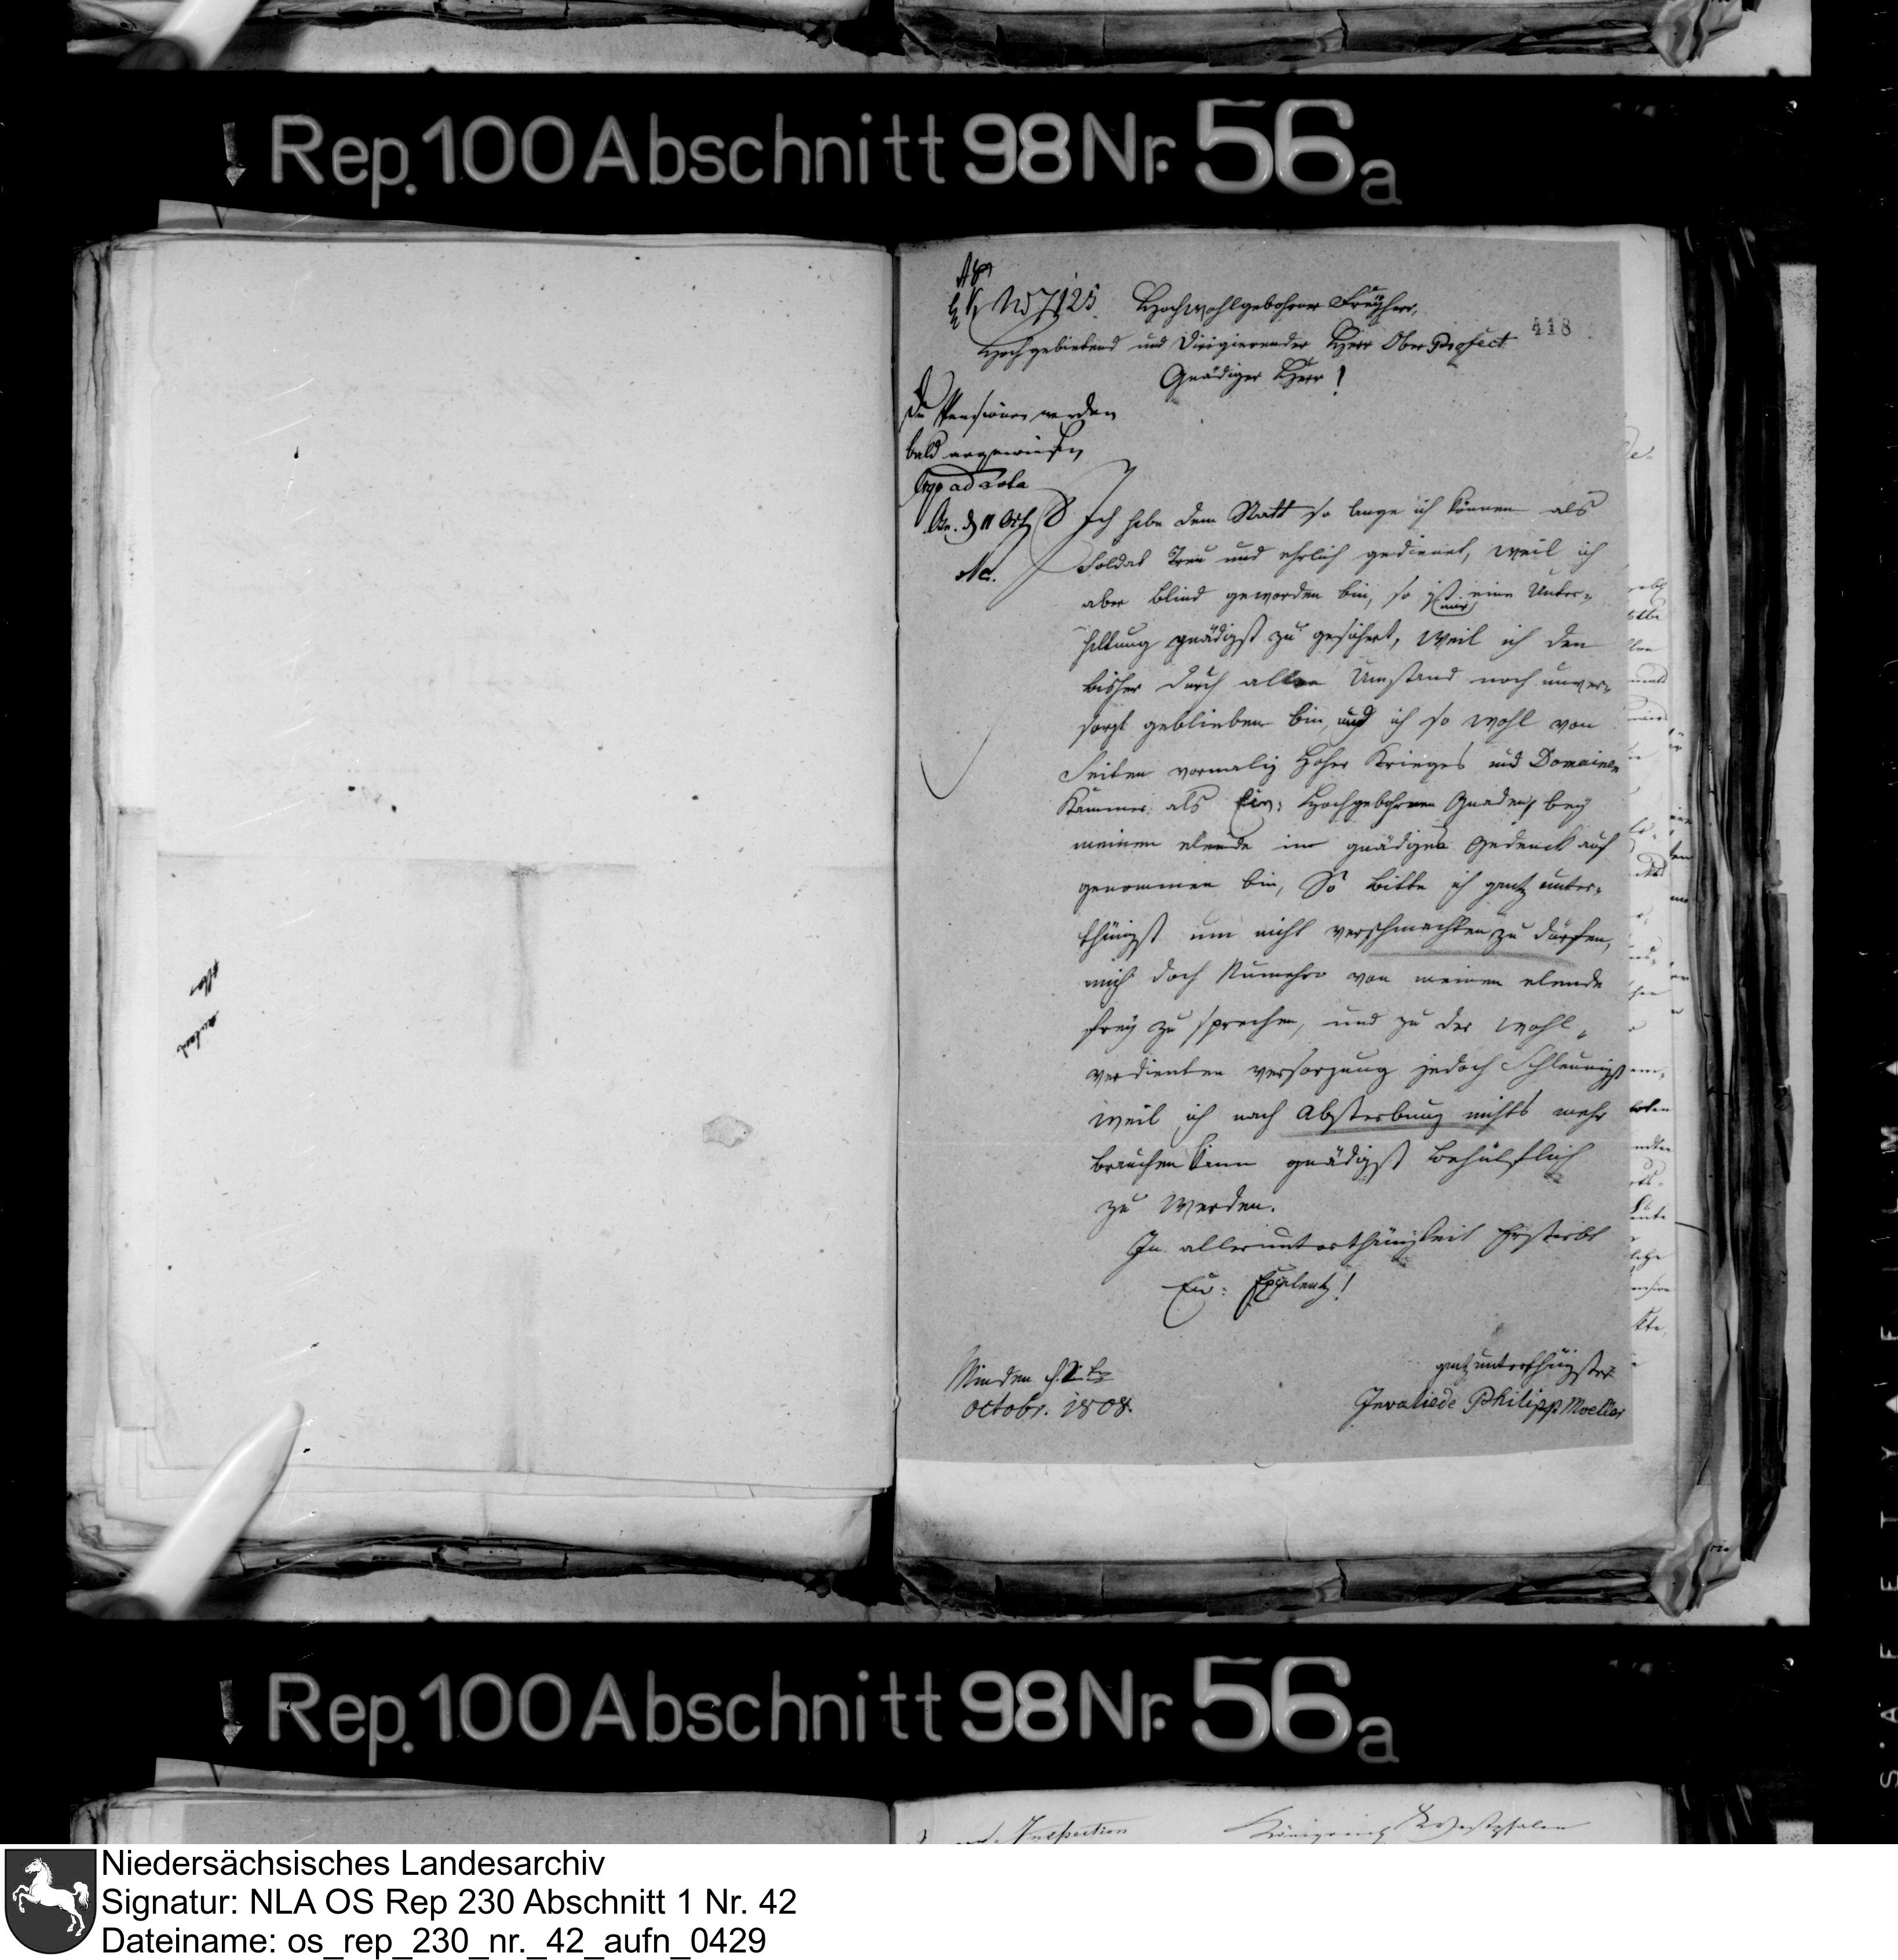 Rep. 100 Abschnitt 98 Nr. 56a
No 7125. Hochwohlgebohrner Freyherr,
418
Hochgebietend und Dirigierender Herr Ober Præfect
Gnädiger Herr!
Die Pensionen werden
bald angewiesen
ad acta
Ich habe dem Statt so lange ich können als
Soldat Treu und ehrlich gedienet, weil ich
aber blind geworden bin, so ist eine Unter-
mir
haltung gnädigst zu gesichert, weil ich den
bisher durch allen Umstand noch unver-
sorgt geblieben bin, und ich so wohl von
Seiten vormalig hoher Krieges und Domainen
Kammer als Eur: Hochgebohrnen Gnaden, bey
meinem elende im gnädiges Gedenck auf
genommen bin, So bitte ich gantz unter-
thänigst um nicht verschmachten zu dürfen,
mich doch Numehro von meinem elende
frey zu sprechen, und zu der wohl-
verdienten versorgung jedoch Schleunigst
weil ich nach Absterbung nichts mehr
brauchen kann gnädigst behülflich
zu werden.
In allerunterthänigkeit Ersterbt
Eur: Excellentz!
Minden d. 2
octobr. 1808.
gantz unterthänigster
Invaliede Philipp Moeller
Rep. 100 Abschnitt 98 Nr. 56a
Inspection
Königreich Westphalen
SAFETY FILM
Niedersächsisches Landesarchiv
Signatur: NLA OS Rep 230 Abschnitt 1 Nr. 42
Dateiname: os_rep_230_nr._42_aufn_0429